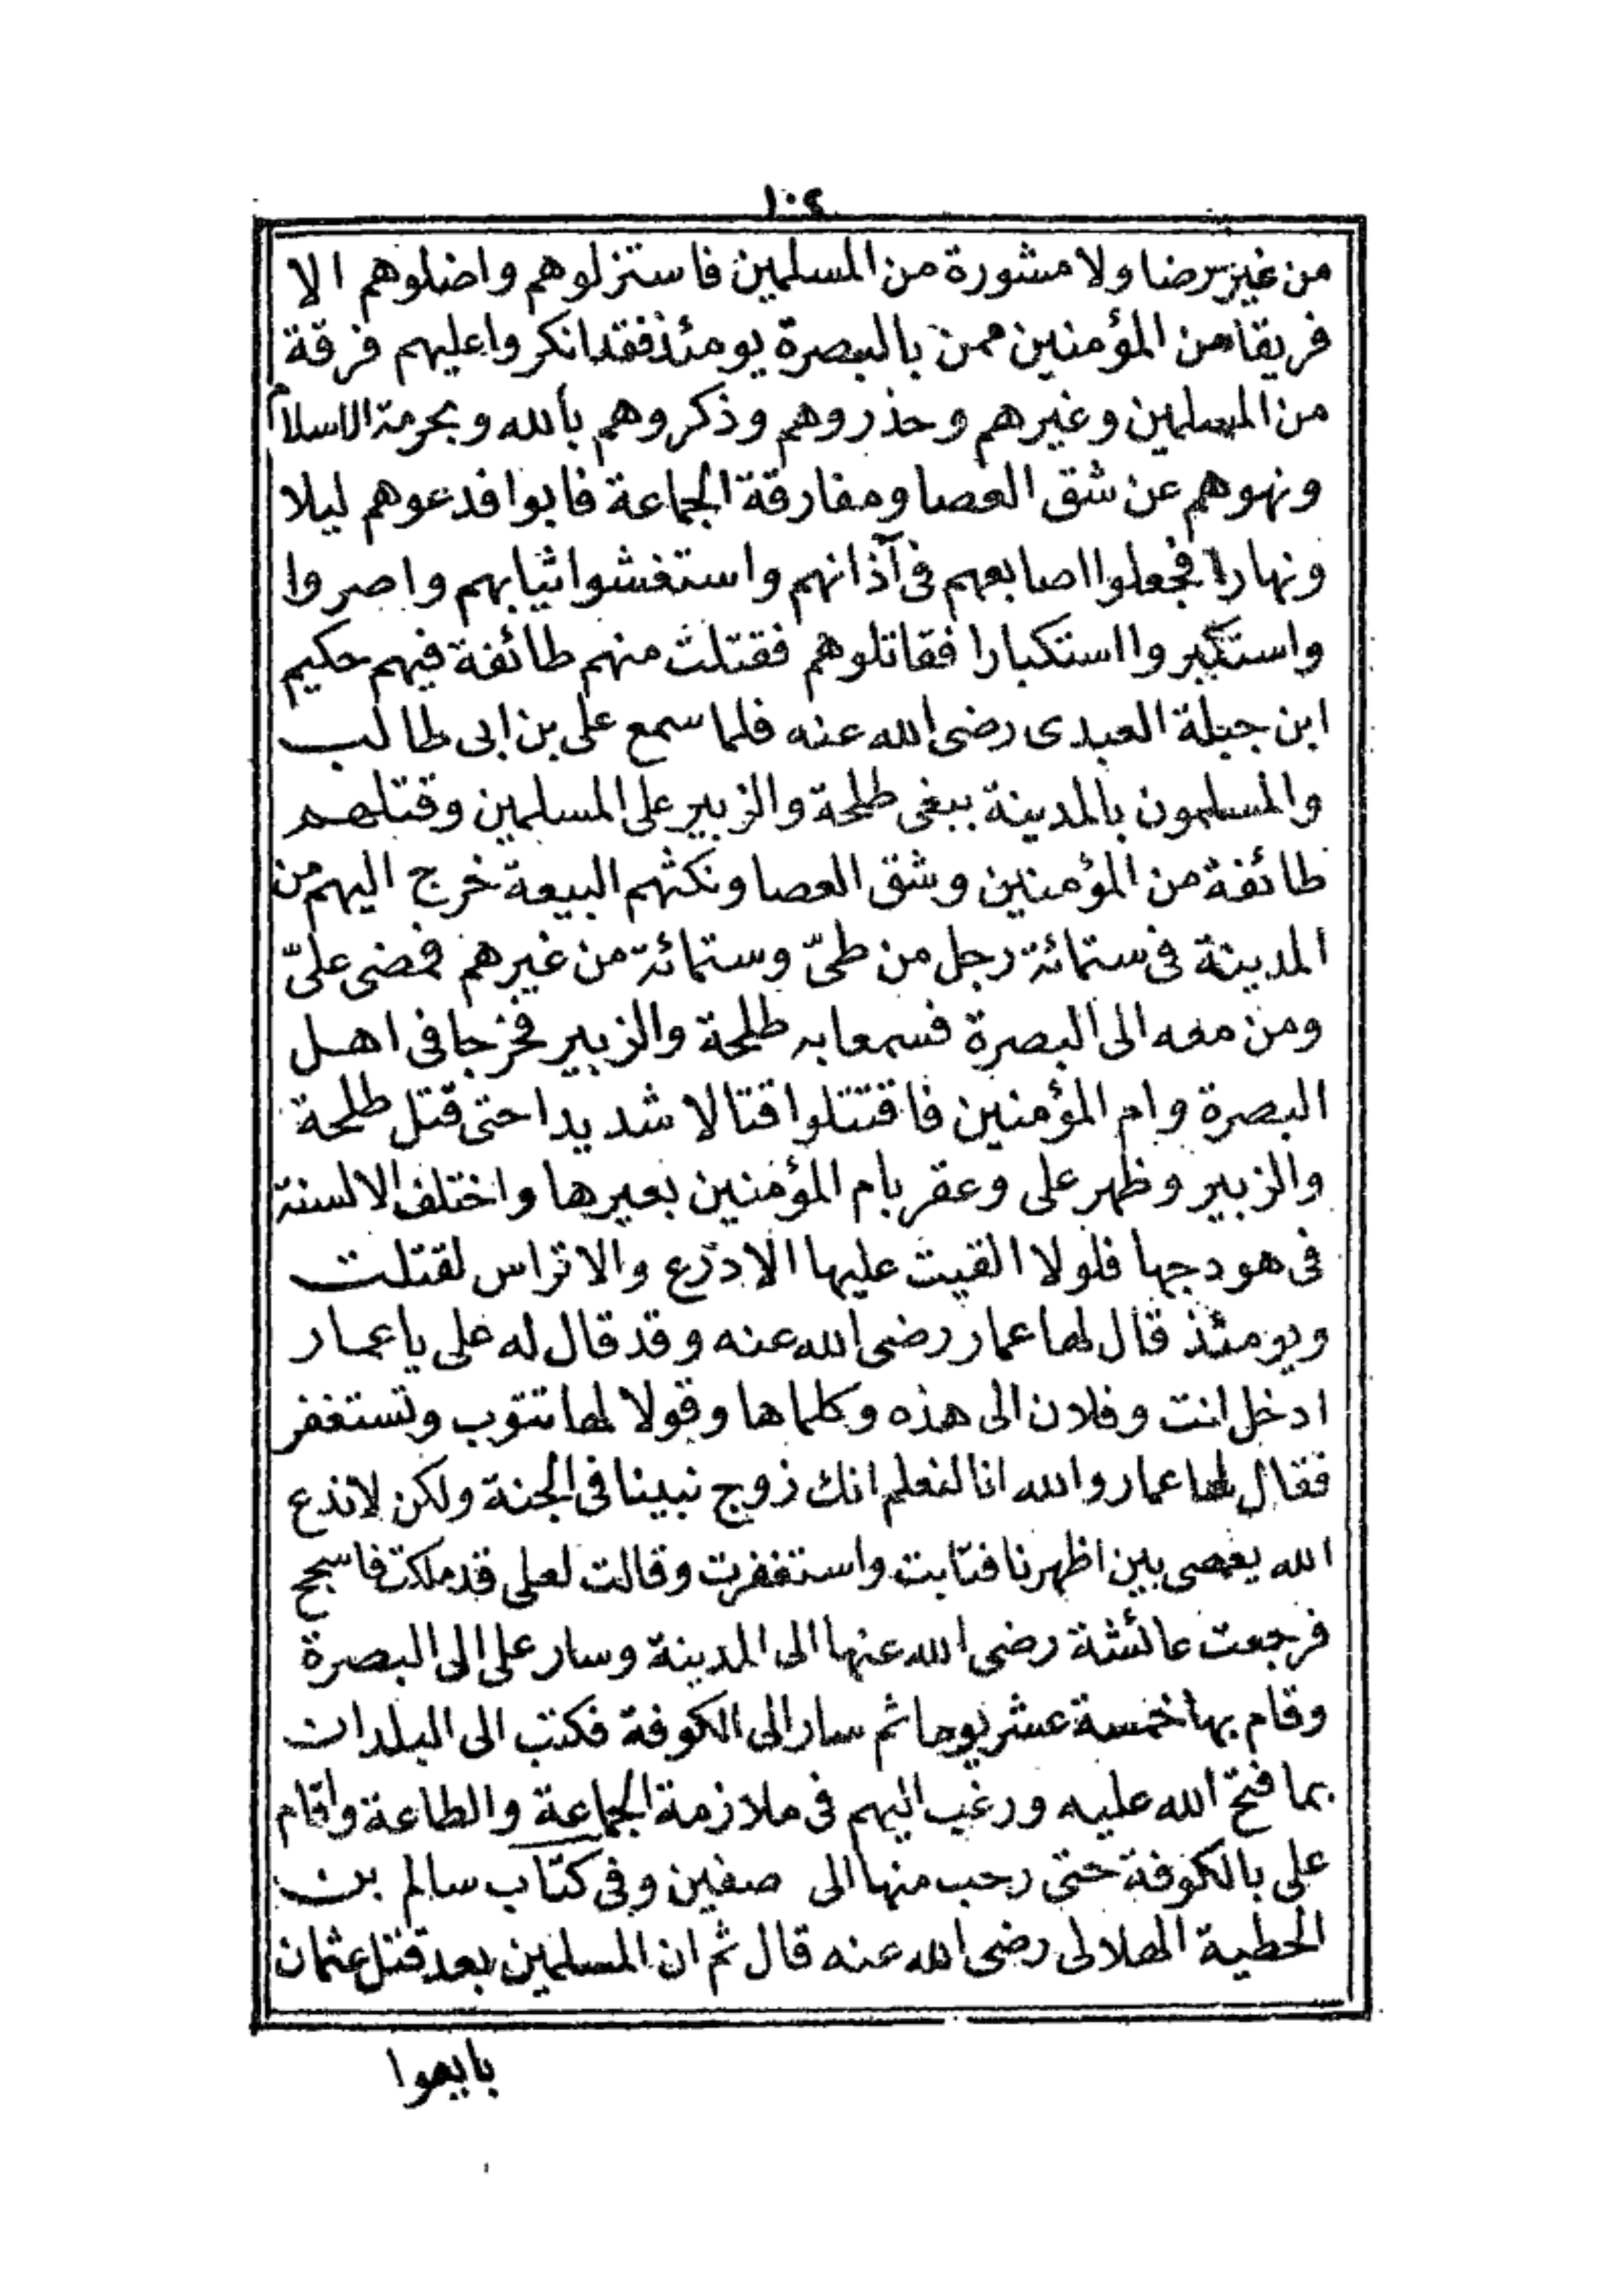 ١٠٤
من غير رضا ولا مشورة من المسلمين فاستنزلوهم واضلوهم الا
فريقا من المؤمنين ممن بالبصرة يومئذ فقد انكروا عليهم فرقة
من المسلمين وغيرهم وحذروهم وذكروهم بالله وبحرمة الاسلام
ونهوهم عن شق العصا ومفارقة الجماعة فابوا فدعوهم ليلا
ونهارا فجعلوا اصابعهم فى آذانهم واستغشوا ثيابهم واصروا
واستكبروا استكبارا فقاتلوهم فقتلت منهم طائفة فيهم حكيم
ابن جبلة العبدى رضى الله عنه فلما سمع على بن ابى طالب
والمسلمون بالمدينة ببغى طلحة والزبير على المسلمين وقتلهم
طائفة من المؤمنين وشق العصا ونكثهم البيعة خرج اليهم من
المدينة فى ستمائة رجل من طىّ وستمائة من غيرهم فمضى علىّ
ومن معه الى البصرة فسمعا به طلحة والزبير فخرجا فى اهل
البصرة وام المؤمنين فاقتتلوا قتالا شديدا حتى قتل طلحة
والزبير وظهر على وعقر بام المؤمنين بعيرها واختلف الالسنة
فى هودجها فلولا القيت عليها الادرع والاتراس لقتلت
ويومئذ قال لها عمار رضى الله عنه وقد قال له على يا عمار
ادخل انت وفلان الى هذه وكلماها وقولا لها تتوب وتستغفر
فقال لها عمار والله انا لنعلم انك زوج نبينا فى الجنة ولكن لا نذع
الله يعصى بين اظهرنا فتابت واستغفرت وقالت لعلى قد ملكت فاسجح
فرجعت عائشة رضى الله عنها الى المدينة وسار على الى البصرة
وقام بها خمسة عشر يوما ثم سار الى الكوفة فكتب الى البلدان
بما فتح الله عليه ورغب اليهم فى ملازمة الجماعة والطاعة واقام
على بالكوفة حتى رحب منها الى صفين وفى كتاب سالم بن
الحطية الهلالى رضى الله عنه قال ثم ان المسلمين بعد قتل عثمان
بايعوا